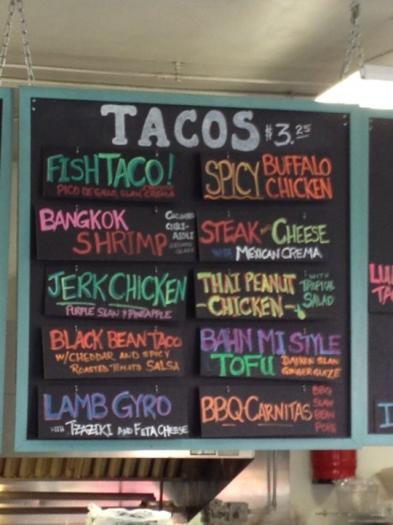 TACOS $3.25
FISH TACO!
PICO DE GALLO, SLAW, CREMA
SPICY BUFFALO
CHICKEN
BANGKOK
SHRIMP
CUCUMBER
STEAK AND CHEESE
WITH MEXICAN CREMA
JERK CHICKEN
PURPLE SLAW & PINEAPPLE
THAI PEANUT
-CHICKEN-
WITH
TROPICAL
SALAD
BLACK BEAN TACO
W/CHEDDAR AND SPICY
ROASTED TOMATO SALSA
BAHN MI STYLE
TOFU
DAIKON SLAW
GINGER GLAZE
LAMB GYRO
WITH TZAZIKI AND FETA CHEESE
BBQ-CARNITAS
BBQ
SLAW
BEAN
PORK